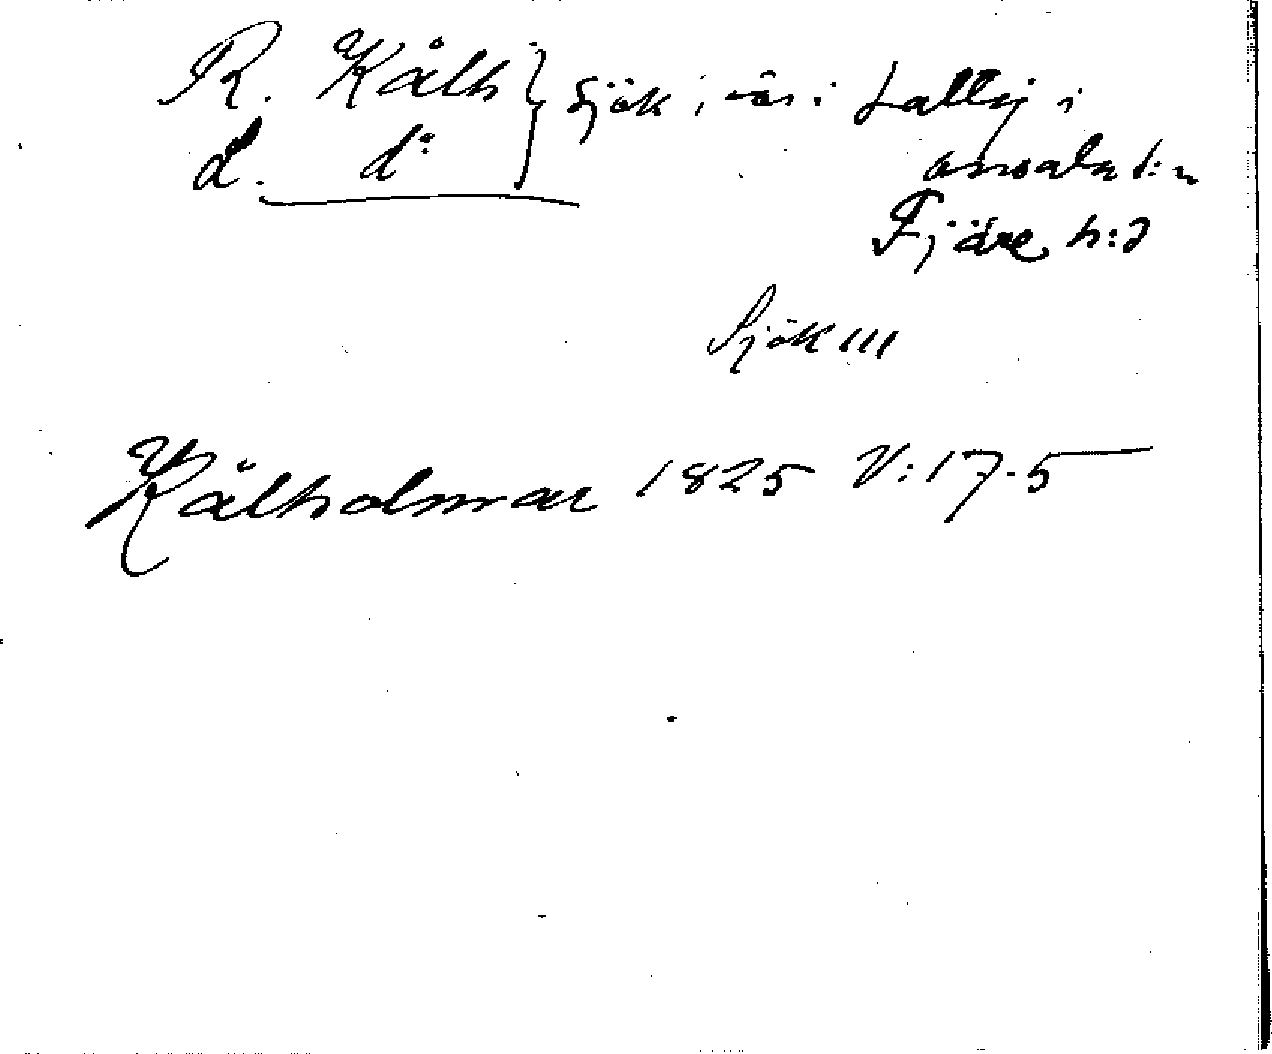 R. Kålh } Sjök i öns i Lalley i
L. d:o
onsala s:n
Fjäre h:d
Sjök III
Kålholmar 1825 V:17.5